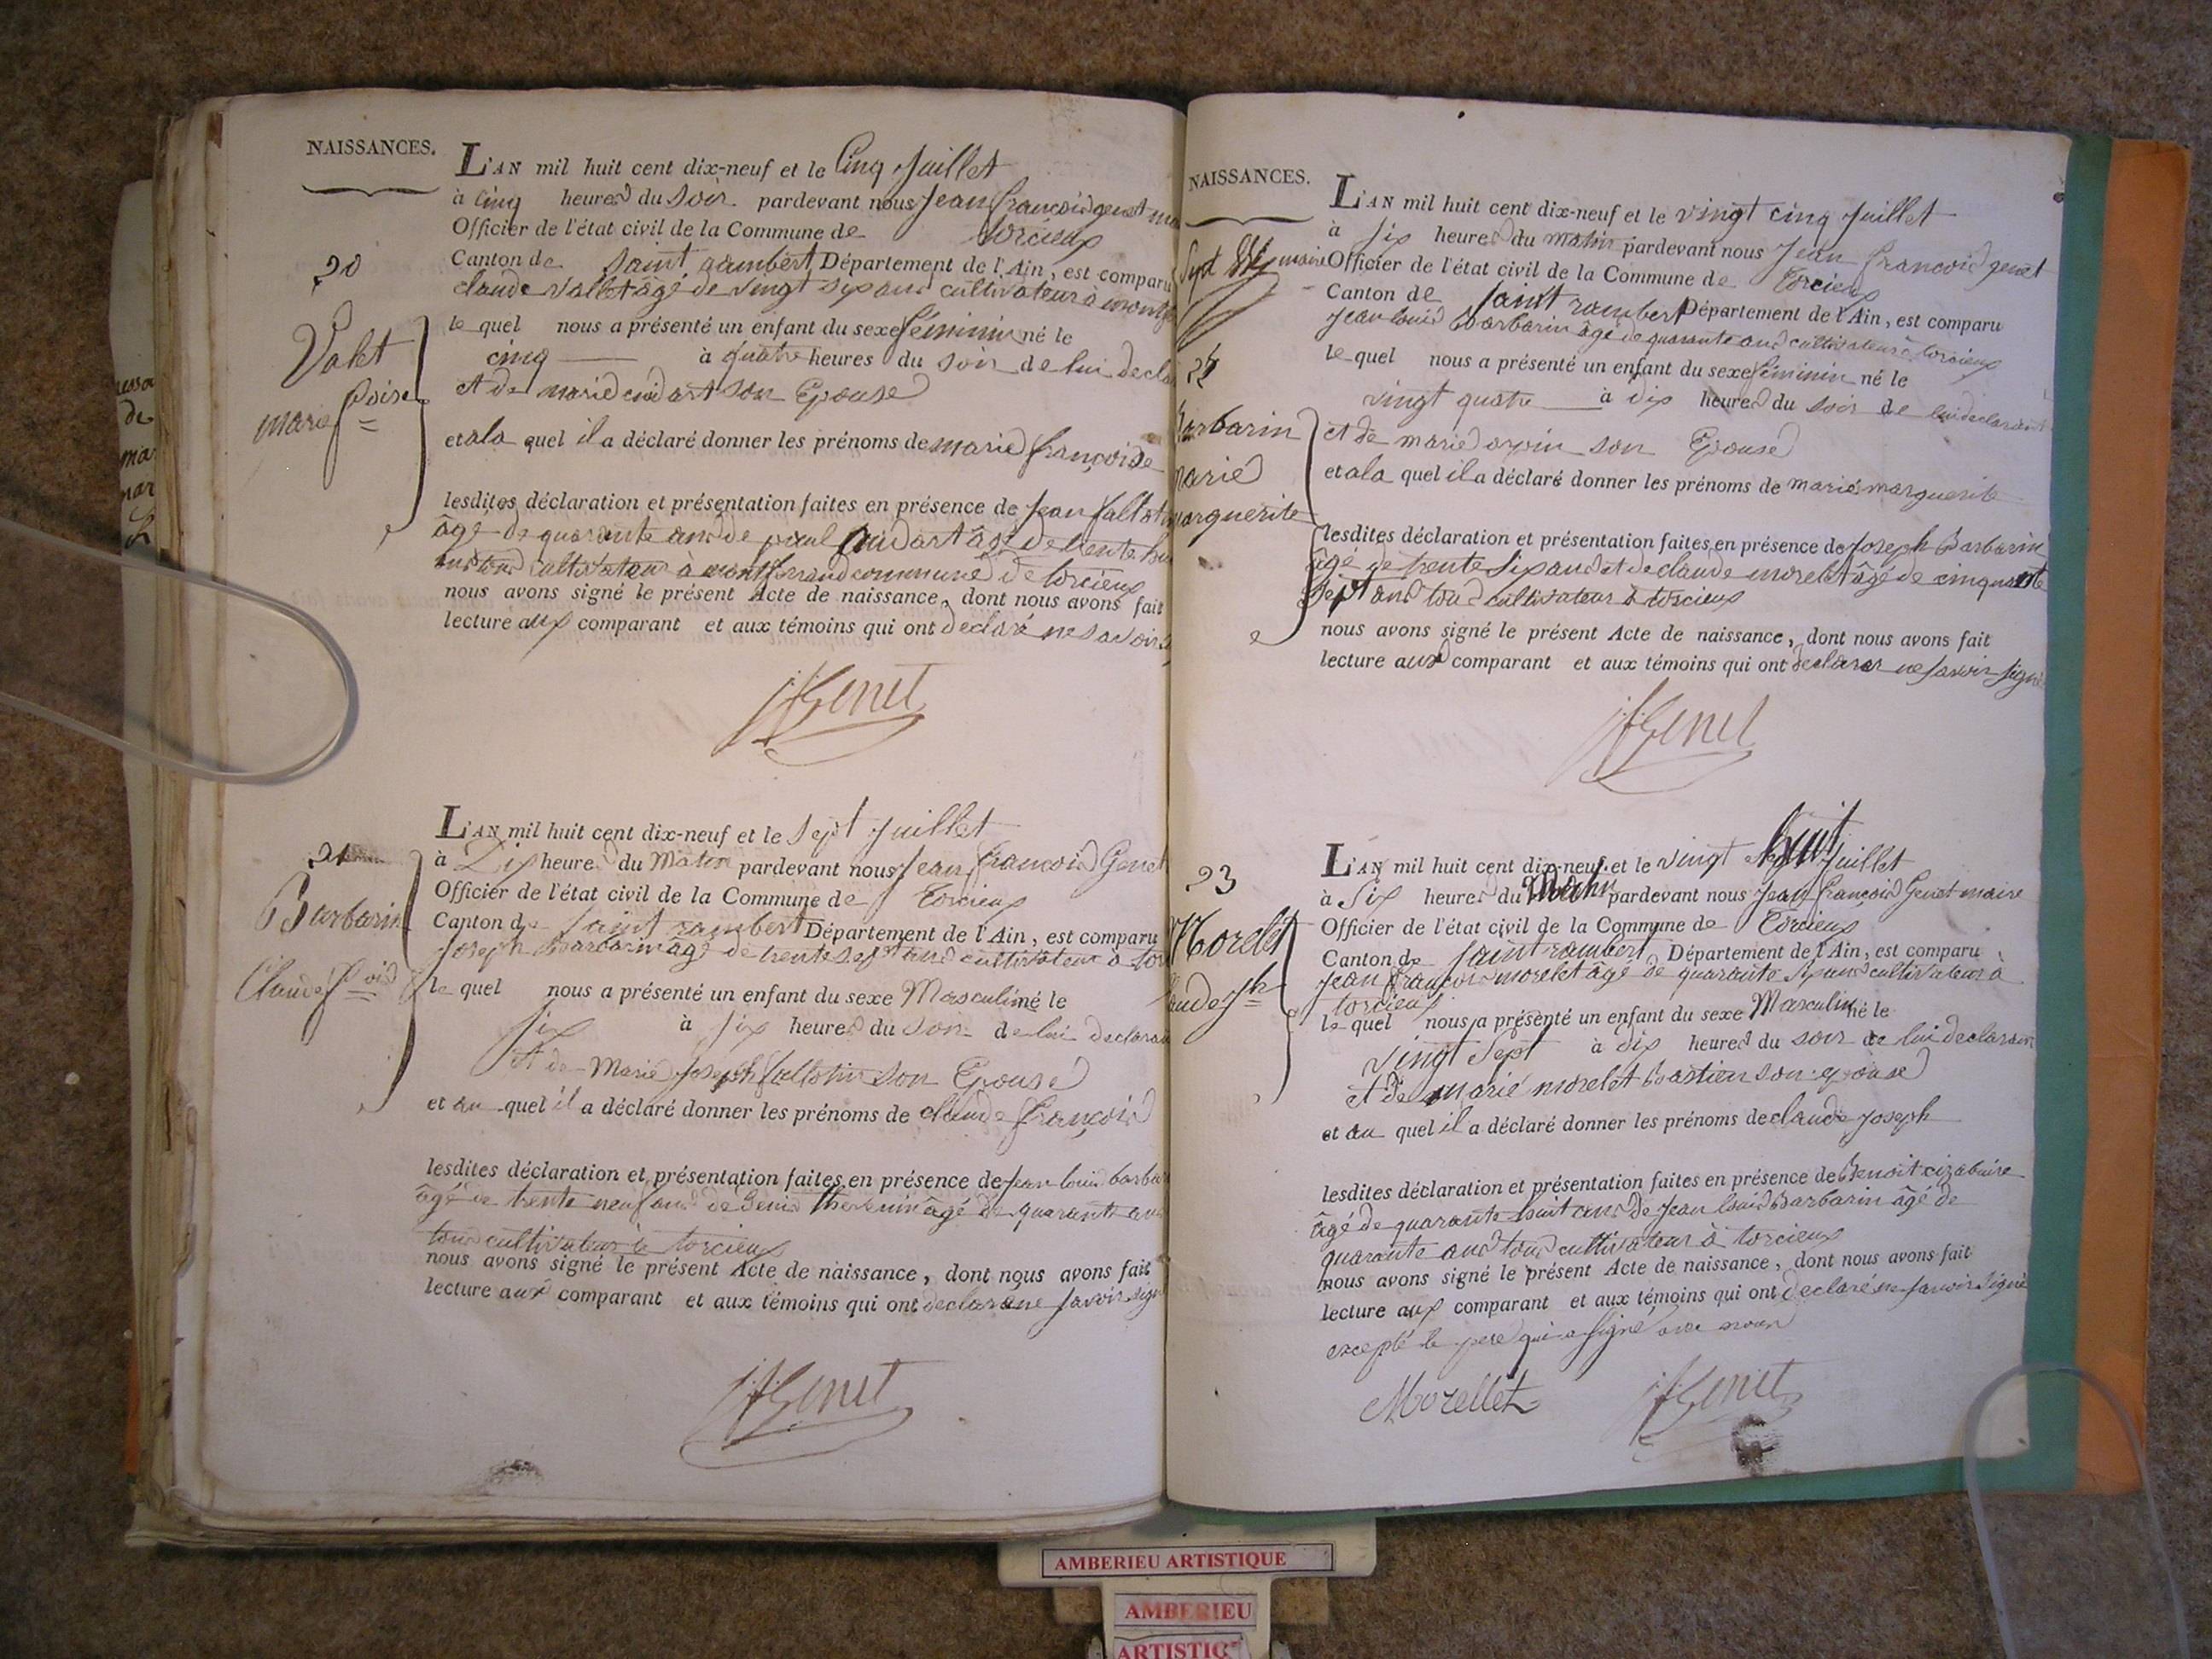 NAISSANCES.
L'AN mil huit cent dix-neuf et le Cinq Juillet
à cinq heures du soir pardevant nous jean françois genet
Officier de l'état civil de la Commune de torcieux
20
Canton de saint rambert Département de l'Ain, est comparu
claude vallet âgé de vingt six ans cultivateur à
Valet
marie
le quel nous a présenté un enfant du sexe féminin né le
cinq à quatre heures du soir de lui
et de marie son Epouse
et a la quel il a déclaré donner les prénoms de marie françoise
lesdites déclaration et présentation faites en présence de jean
âgé de quarante ans de paul âgé de trente
cultivateur à montferrand commune de torcieux
nous avons signé le présent Acte de naissance, dont nous avons fait
lecture aux comparant et aux témoins qui ont declaré ne savoir
jfGenet
L'AN mil huit cent dix-neuf et le sept juillet
21
à Dix heures du Matin pardevant nous jean françois Genet
Officier de l'état civil de la Commune de Torcieux
Barbarin
Claude fcois
Canton de saint rambert Département de l'Ain, est comparu
joseph barbarin âgé de trente sept ans cultivateur à
le quel nous a présenté un enfant du sexe Masculin né le
six à six heures du soir de lui
et de Marie joseph son Epouse
et au quel il a déclaré donner les prénoms de claude françois
lesdites déclaration et présentation faites en présence de jean louis
âgé de trente neuf ans de Denis âgé de quarante
tous cultivateur à torcieux
nous avons signé le présent Acte de naissance, dont nous avons fait
lecture aux comparant et aux témoins qui ont declaré ne savoir
jfGenet
NAISSANCES.
L'AN mil huit cent dix-neuf et le vingt cinq juillet
à six heures du matin pardevant nous jean françois genet
maire Officier de l'état civil de la Commune de Torcieux
Canton de saint rambert Département de l'Ain, est comparu
jean louis Barbarin âgé de quarante ans cultivateur à torcieux
22
le quel nous a présenté un enfant du sexe féminin né le
vingt quatre à dix heures du soir de lui declarant
et de marie orpin son Epouse
et a la quel il a déclaré donner les prénoms de marie marguerite
lesdites déclaration et présentation faites en présence de joseph Barbarin
âgé de trente six ans et de claude morelet âgé de cinquante
sept ans tous cultivateur à torcieux
nous avons signé le présent Acte de naissance, dont nous avons fait
lecture aux comparant et aux témoins qui ont declarer ne savoir signé
jfGenet
L'AN mil huit cent dix-neuf et le vingt huit juillet
23
à six heures du Matin pardevant nous jean françois Genet maire
Officier de l'état civil de la Commune de Torcieux
Morelet
Canton de saint rambert Département de l'Ain, est comparu
jean françois morelet âgé de quarante ans cultivateur à
torcieux
le quel nous a présenté un enfant du sexe Masculin né le
vingt sept à dix heures du soir de lui declarant
et de marie morelet bastien son epouse
et au quel il a déclaré donner les prénoms de claude joseph
lesdites déclaration et présentation faites en présence de Benoit
âgé de quarante huit ans de jean louis Barbarin âgé de
quarante ans tous cultivateur à torcieux
nous avons signé le présent Acte de naissance, dont nous avons fait
lecture aux comparant et aux témoins qui ont declaré ne savoir signé
excepté le pere qui a signé avec nous
Morellet
jfGenet
AMBERIEU ARTISTIQUE
AMBERIEU
ARTISTIQ